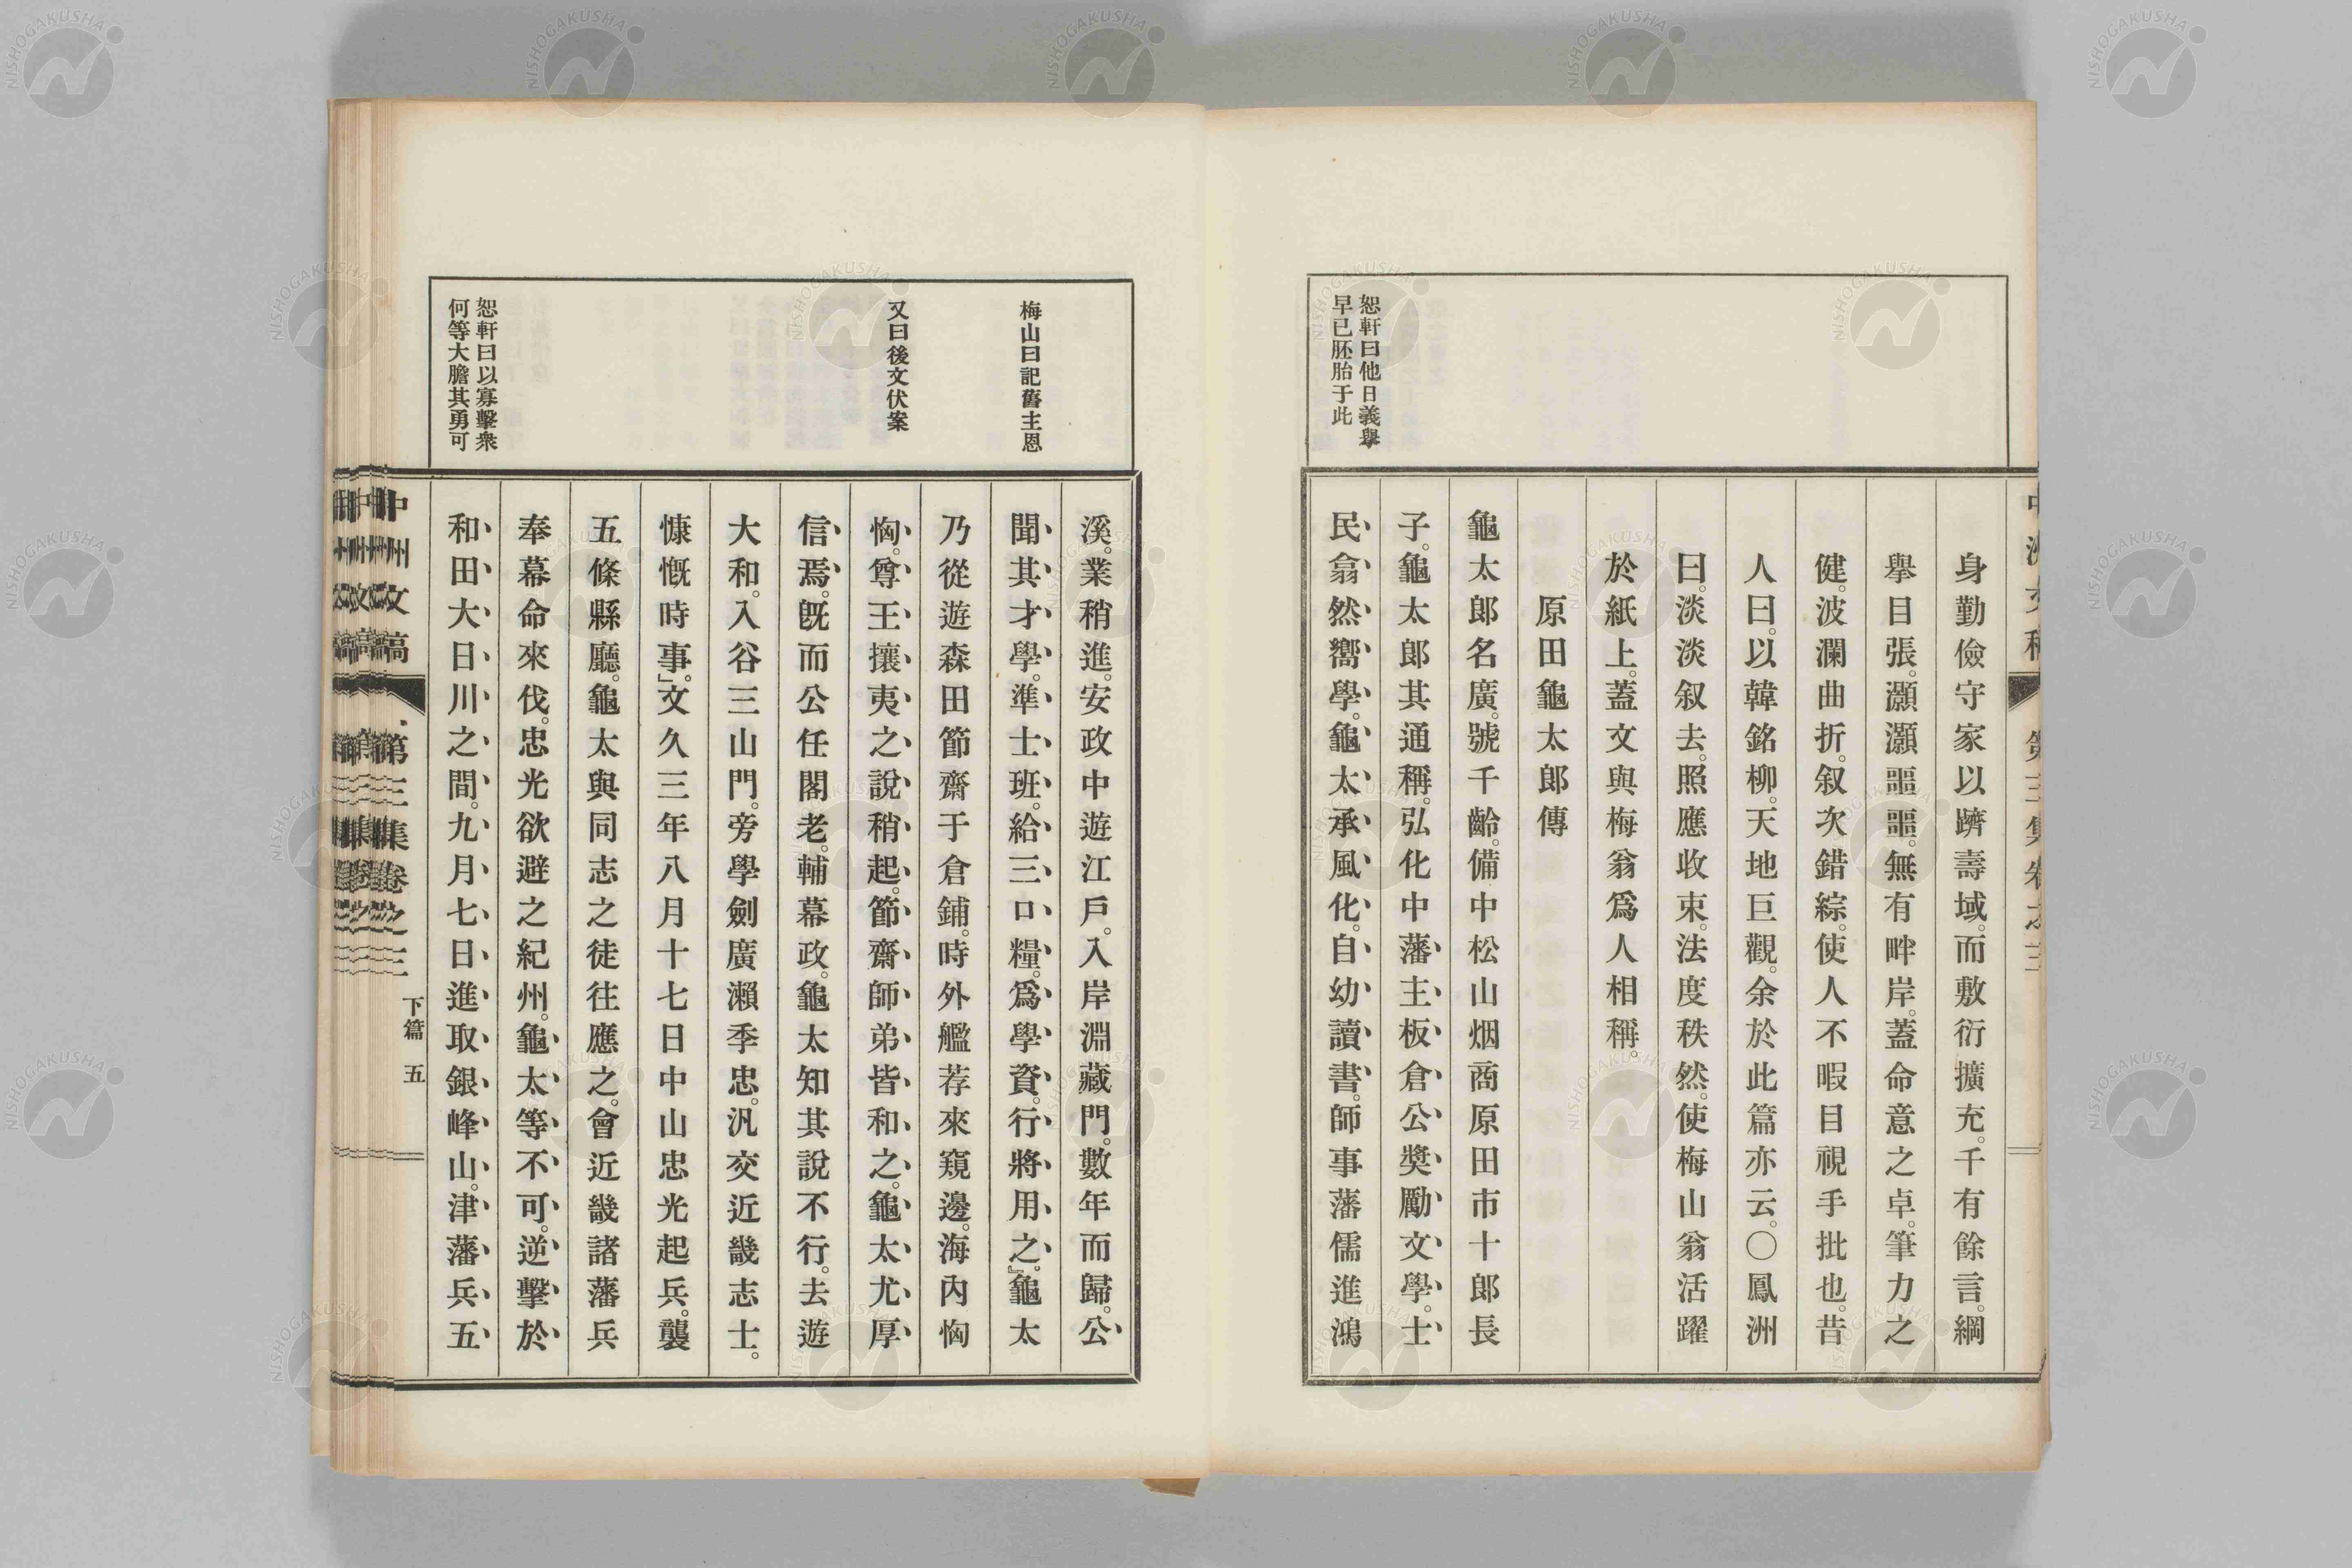 身勤儉守家以躋壽域。而敷衍擴充。千有餘言。綱
擧目張。灝灝噩噩。無有畔岸。蓋命意之卓。筆力之
健。波瀾曲折。叙次錯綜。使人不暇目視手批也。昔
人曰。以韓銘柳。天地巨觀。余於此篇亦云。○鳳洲
曰。淡淡叙去。照應收束。法度秩然。使梅山翁活躍
於紙上。蓋文與梅翁爲人相稱。
原田龜太郎傳
龜太郎名廣。號千齡。備中松山烟商原田市十郎長
子。龜太郎其通稱。弘化中藩主板倉公奬勵文學。士
民翕然嚮學。龜太承風化。自幼讀書。師事藩儒進鴻
恕軒曰他日義擧
早已胚胎于此
溪。業稍進。安政中遊江戶。入岸淵藏門。數年而歸。公
聞其才學。準士班。給三口糧。爲學資。行將用之。』龜太
乃從遊森田節齋于倉鋪。時外艦荐來窺邊。海內恟
恟。尊王攘夷之說稍起。節齋師弟皆和之。龜太尤厚
信焉。旣而公任閣老。輔幕政。龜太知其說不行。去遊
大和。入谷三山門。旁學劍廣瀨季忠。汎交近畿志士。
慷慨時事。』文久三年八月十七日中山忠光起兵。襲
五條縣廳。龜太與同志之徒往應之。會近畿諸藩兵
奉幕命來伐。忠光欲避之紀州。龜太等不可。逆擊於
和田大日川之間。九月七日進取銀峰山。津藩兵五
梅山曰記舊主恩
又曰後文伏案
恕軒曰以寡擊衆
何等大膽其勇可
中州文稿 第三集卷之三 下篇 五
NISHOGAKUSHA